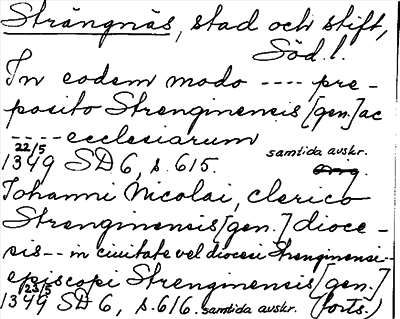 Strängnäs, stad och stift,
Söd.l.
In eodem modo ---- pre-
posito Strenginensis [gen.] ac
---- ecclesiarum
22/5 samtida avskr.
1349 SD 6, s. 615. Orig.
Iohanni Nicolai, clerico
Strenginensis [gen.] dioce-
sis -- in ciuitate vel diocesi Strenginensi --
episcopi Strenginensis [gen.]
23/5
1349 SD 6, s. 616. samtida avskr. (forts.)